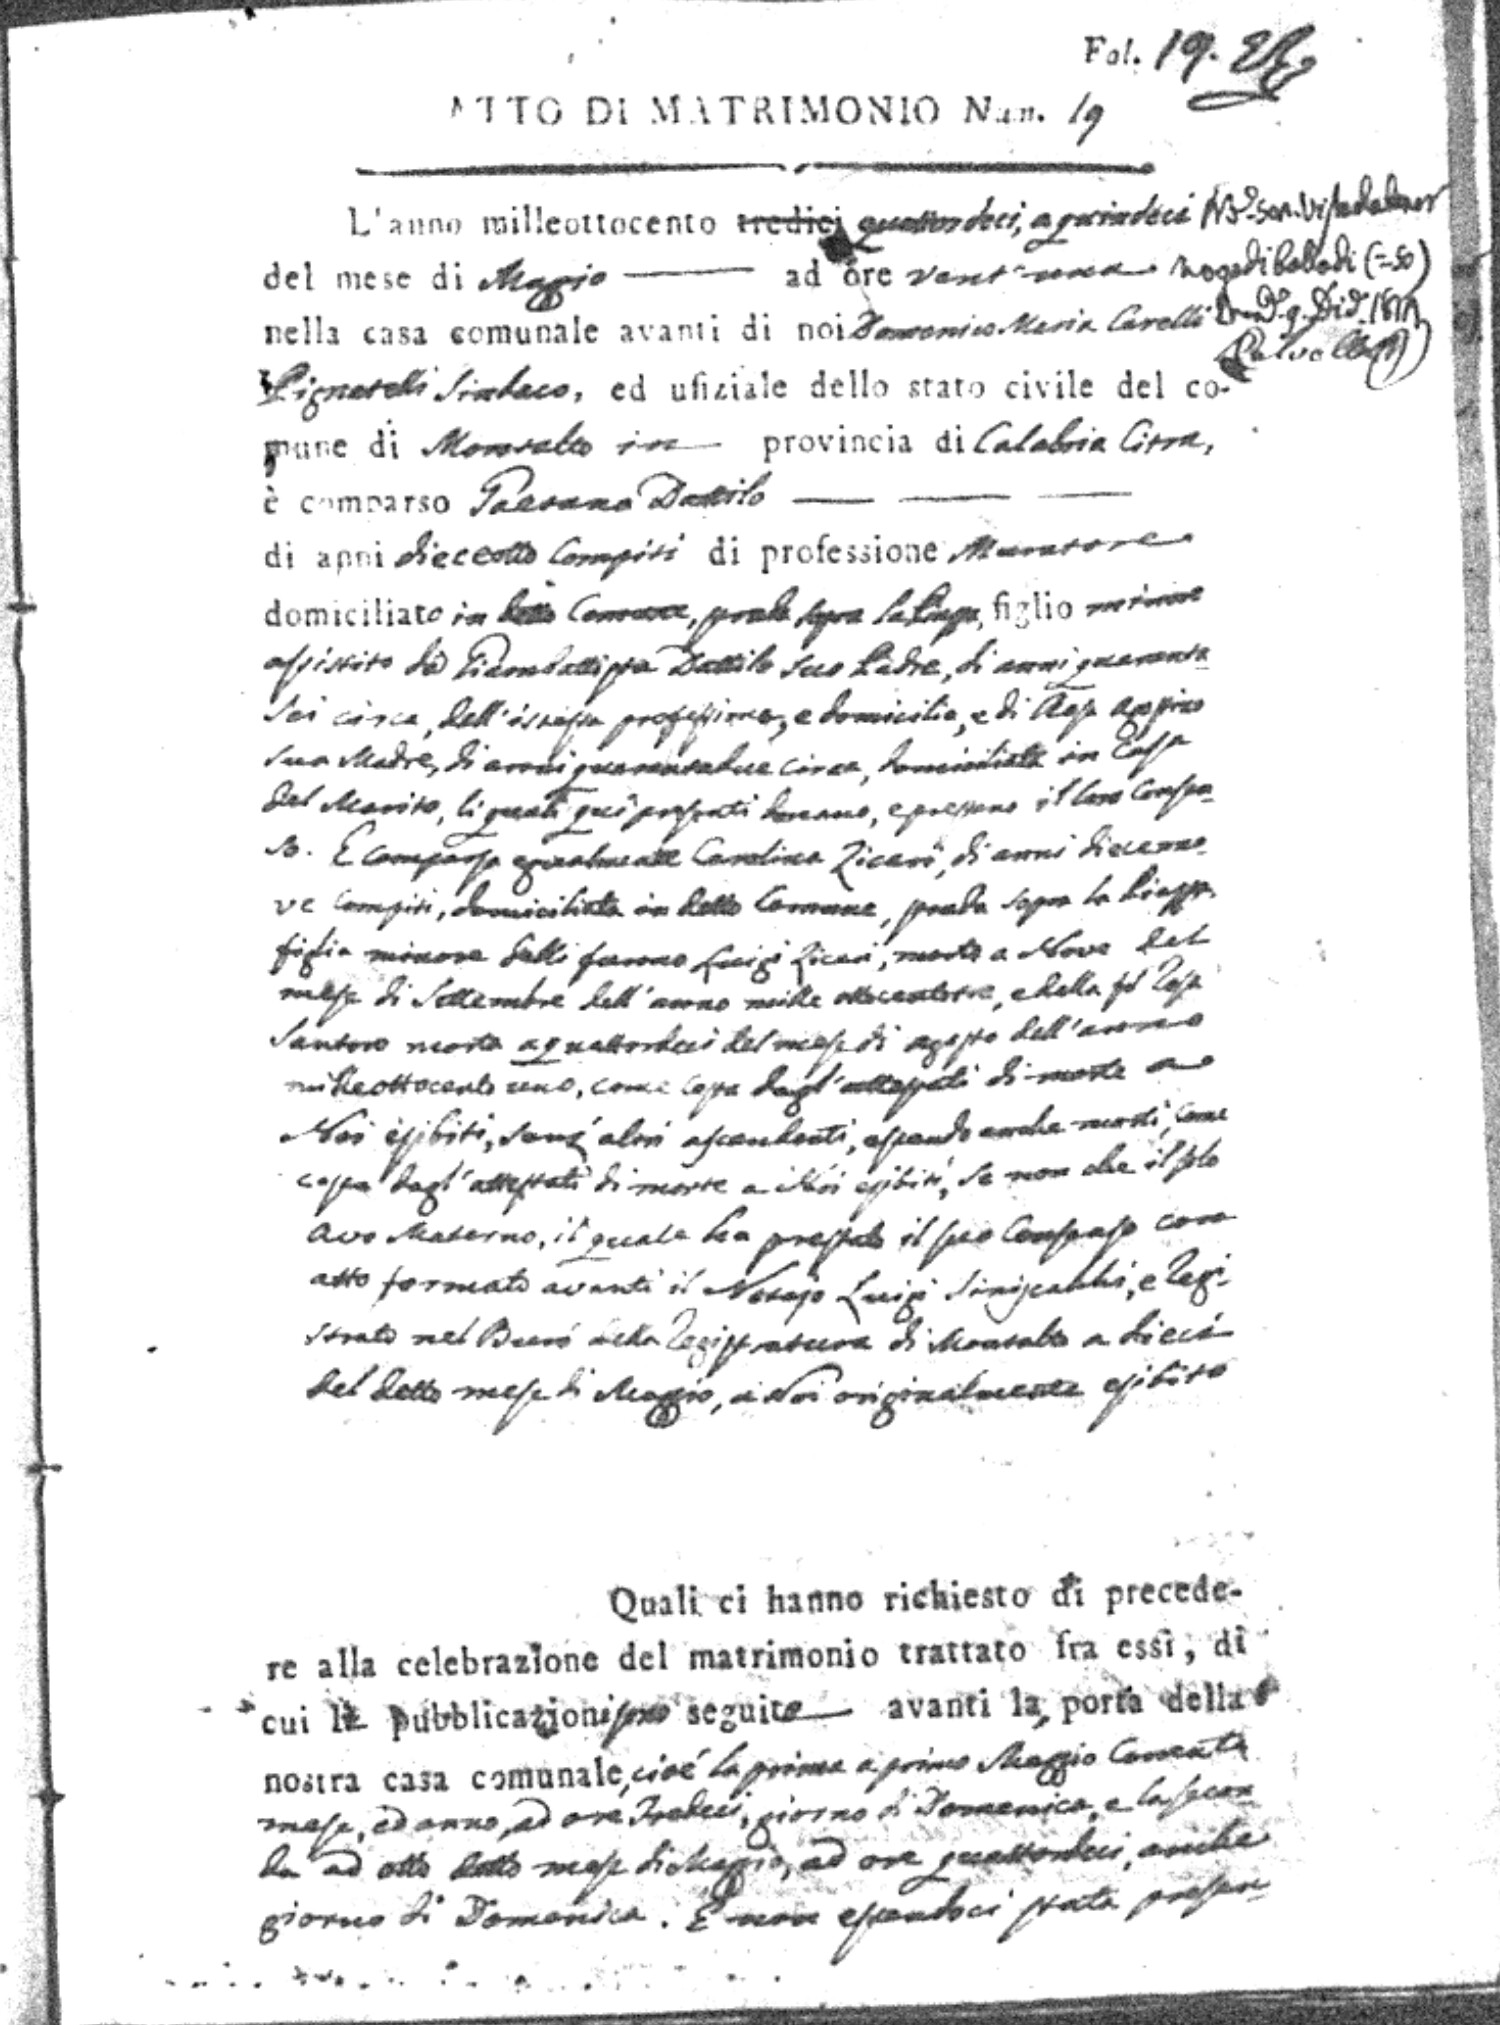 Fol. 19.
ATTO DI MATRIMONIO Num. 19
L'anno milleottocento tredici quattordeci, a quindeci
del mese di Maggio ad ore vent'una
nella casa comunale avanti di noi Domenico Maria Carelli
Pignatelli Sindaco, ed ufiziale dello stato civile del co-
mune di Montalto in provincia di Calabria Citra,
è comparso Gaetano Dattilo
di anni dieceotto compiti di professione Muratore
domiciliato in detto Comune, strada sopra la Piazza, figlio minore
assistito da Giambattista Dattilo suo Padre, di anni quaranta
sei circa, dell'istessa professione, e domicilio, e di
sua Madre, di anni quarantadue circa, domiciliata in Casa
del Marito, li quali quì presenti donano, e prestano il loro Consen-
so. E comparsa egualmente Carolina Ziccari, di anni diecenno-
ve compiti, domiciliata in detto Comune, strada sopra la Piazza
figlia minore delli furono Luigi Ziccari, morto a Nove del
mese di Settembre dell'anno mille ottocentotre, e della fù Rosa
Santoro morta a quattordeci del mese di agosto dell'anno
milleottocento uno, come costa dagl'attestati di morte a
Noi esibiti, senz'altri ascendenti, essendo anche morti, come
costa dagl'attestati di morte a Noi esibiti, se non che il solo
avo Materno, il quale ha prestato il suo Consenso con
atto formato avanti il Notajo Luigi Siniscalchi, e regi-
strato nel Burò della Registratura di Montalto a dieci
del detto mese di Maggio, a Noi originalmente esibito
Quali ci hanno richiesto di precede-
re alla celebrazione del matrimonio trattato fra essi, di
cui le pubblicazioni sono seguite avanti la porta della
nostra casa comunale, cioè la prima a primo Maggio Corrente
mese, ed anno, ad ore Tredeci, giorno di Domenica, e la secon-
da ad otto detto mese di Maggio, ad ore quattordeci, anche
giorno di Domenica. E non essendoci stata presen-